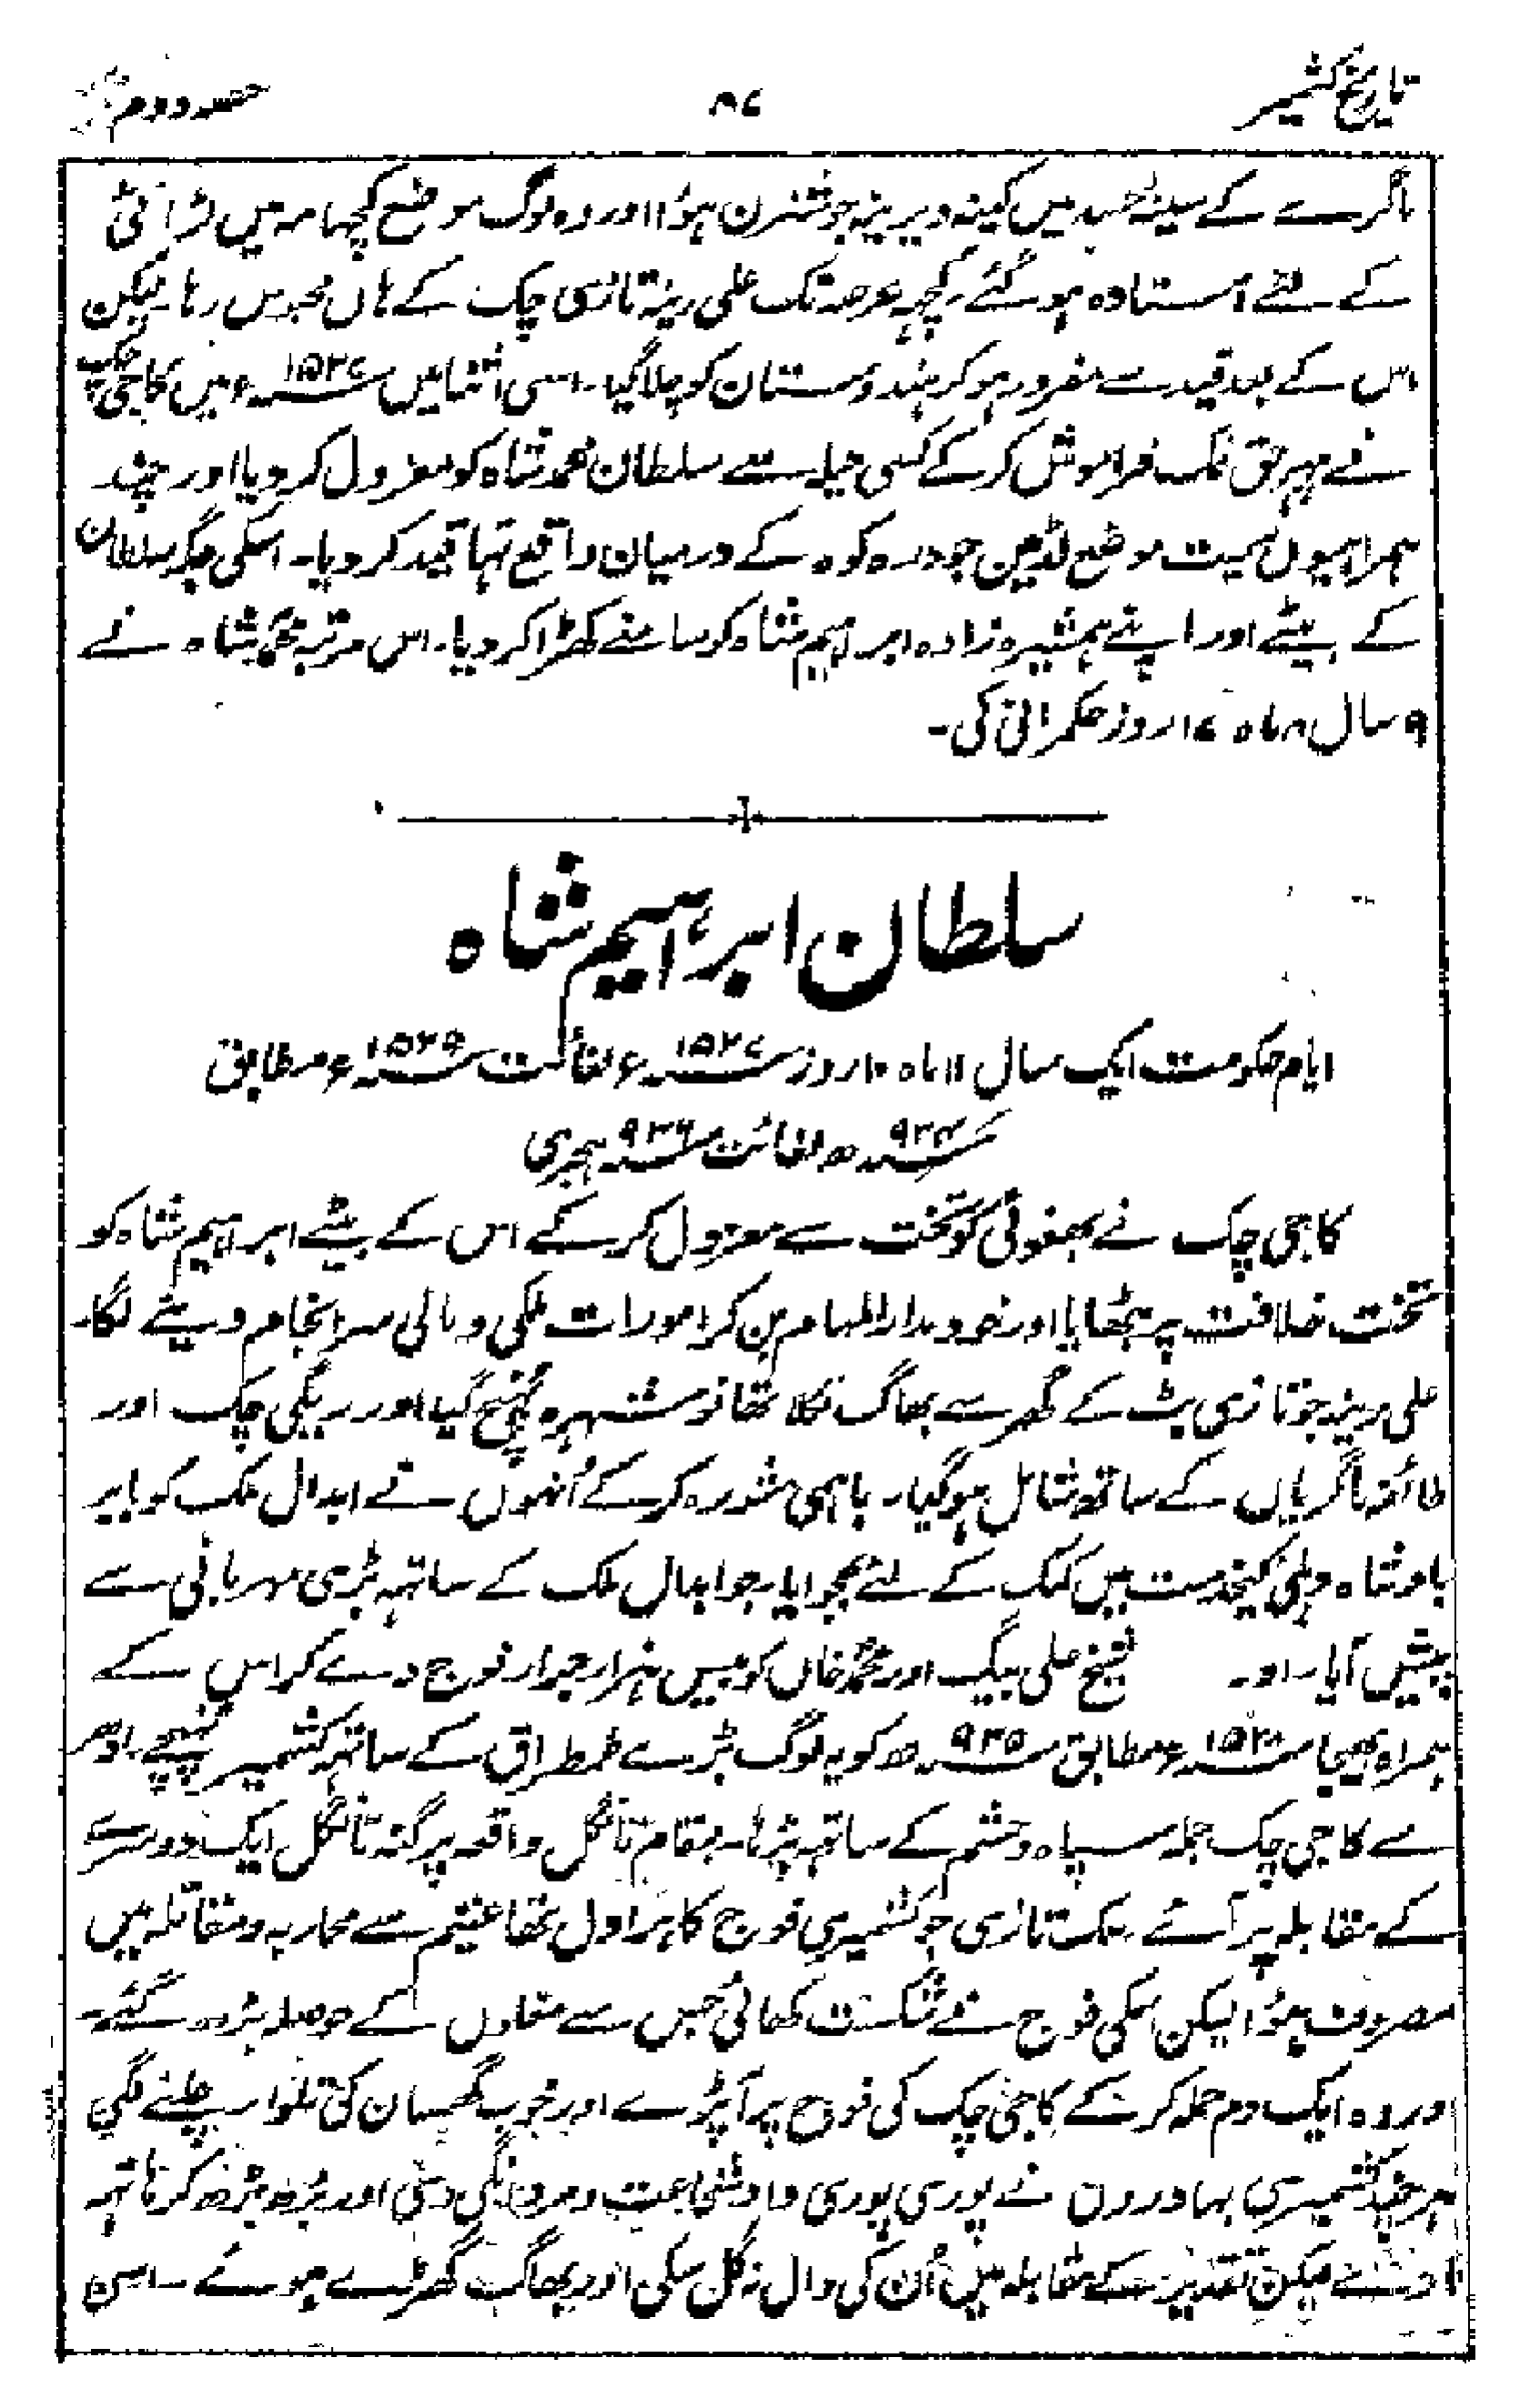 تاریخ کشمیر ۸۷ حصہ دوم
ماگرے کے سینہ میں کینہ دیرینہ جوشزن ہوُا اور وہ لوگ موضع کچہامہ میں لڑائی
کے لئے استادہ ہو گئے۔ کچہ عرصہ تک علی رینہ تازی چک کے ہاں محبوس رہا۔ لیکن
اس کے بعد قید سے مفرور ہو کر ہندوستان کو چلا گیا۔ اسی اثنا میں سنہ ۱۵۲۷ء میں کاجی چک
نے پہر حق نمک فراموش کر کے کسی حیلہ سے سلطان محمد شاہ کو معزول کر دیا اور چند
ہمراہیوں سمیت موضع لڈمین جو درہ کوہ کے درمیان واقع تہا قید کر دیا۔ اسکی جگہ سلطان
کے بیٹے اور اپنے ہمشیرہ زادہ ابراہیم شاہ کو سامنے کھڑا کر دیا۔ اس مرتبہ محمد شاہ نے
۹ سال ۸ ماہ ۱۷ روز حکمرانی کی۔
سلطان ابراہیم شاہ
ایام حکومت ایک سال ۱۱ ماہ ۱۰ روز سنہ ۱۵۲۷ء لغائت سنہ ۱۵۲۹ء مطابق
سنہ ۹۳۴ھ لغائت سنہ ۹۳۶ ہجری
کاجی چک نے بہنوئی کو تخت سے معزول کر کے اس کے بیٹے ابراہیم شاہ کو
تخت خلافت پر بٹھایا اور خود مدار المہام بن کر امورات ملکی و مالی سرانجام دینے لگا۔
علی رینہ جو تازی بٹ کے گھر سے بھاگ نکلا تھا نوشہرہ پہنچ گیا اور ریگی چک اور
طائفہ ماگریاں کے ساتھ شامل ہو گیا۔ باہمی مشورہ کر کے اُنہوں نے ابدال ملک کو بابر
بادشاہ دہلی کیخدمت میں کمک کے لئے بھجوایا۔ جو ابدال ملک کے ساتہہ بڑی مہربانی سے
پیش آیا۔ اور شیخ علی بیگ اور محمد خاں کو بیس ہزار جرار فوج دے کر اس کے
ہمراہ بھیجا سنہ ۱۵۲۸ء مطابق سنہ ۹۳۵ھ کو یہ لوگ بڑے طمطراق کے ساتہہ کشمیر پہنچے۔ اودہر
سے کاجی چک جملہ سپاہ و حشم کے ساتہہ بڑہا۔ بمقام تانگل واقعہ پرگنہ تانگل ایک دوسرے
کے مقابلہ پر آئے۔ ملک تازی جو کشمیری فوج کا ہراول تھا غنیم سے محاربہ و مقاتلہ میں
مصروف ہوُا لیکن اسکی فوج نے شکست کھائی جس سے مغلوں کے حوصلہ بڑھ گئے۔
اور وہ ایک دم حملہ کر کے کاجی چک کی فوج پر آپڑے اور خوب گھمسان کی تلوار چلنے لگی
ہر چند کشمیری بہادروں نے پوری پوری داد شجاعت و مردانگی دی اور بڑھ بڑھ کر ہاتہہ
مارے لیکن تقدیر کے مقابلہ میں اُن کی دال نہ گل سکی اور بھاگ کھڑے ہوئے۔ اسی